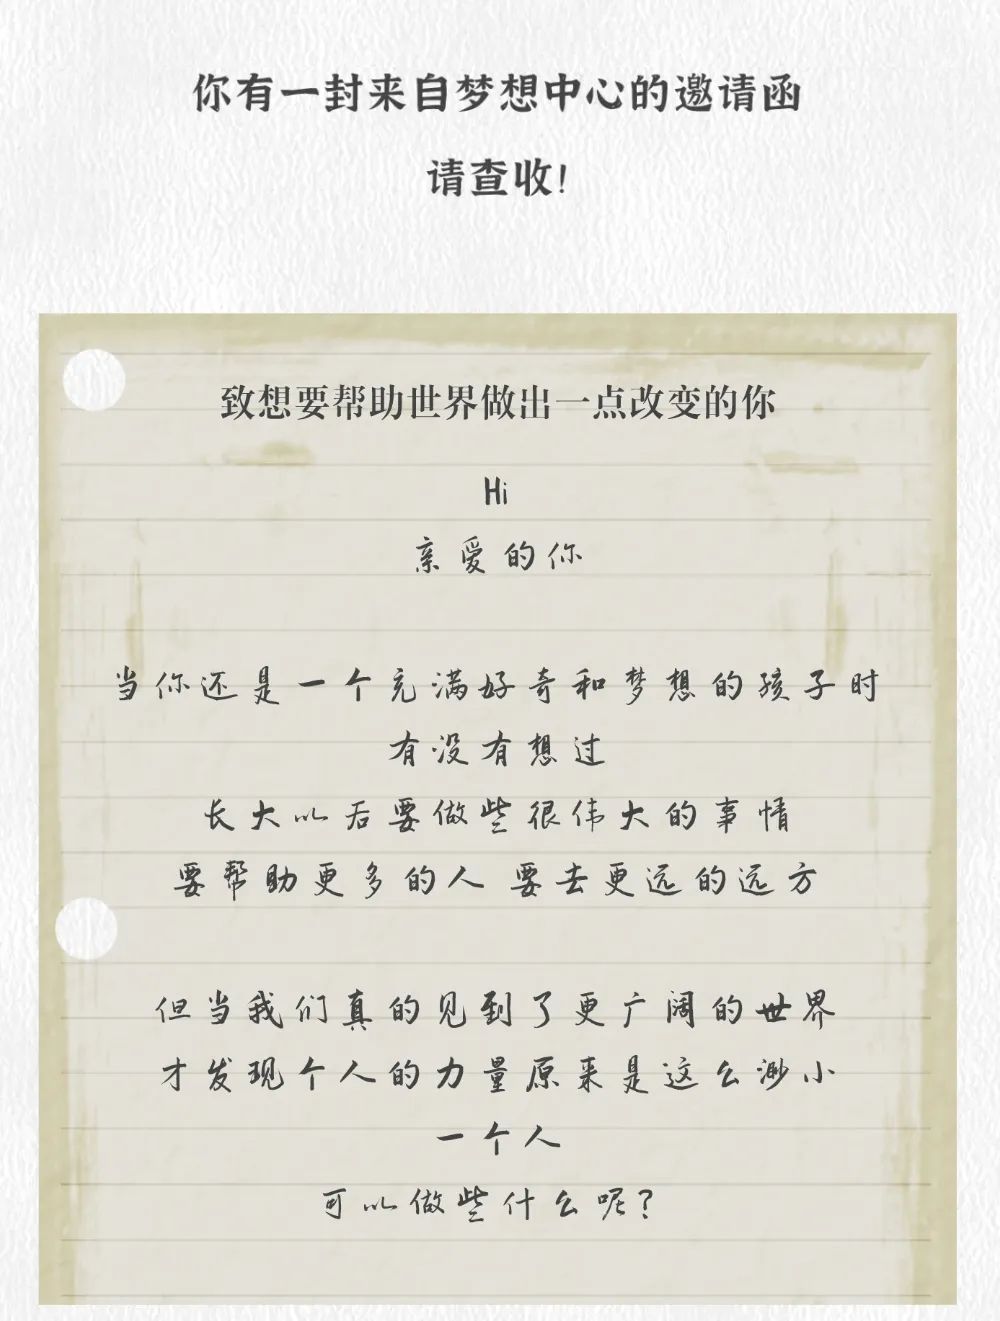 你有一封来自梦想中心的邀请函
请查收！
致想要帮助世界做出一点改变的你
Hi
亲爱的你
当你还是一个充满好奇和梦想的孩子时
有没有想过
长大以后要做些很伟大的事情
要帮助更多的人 要去更远的远方
但当我们真的见到了更广阔的世界
才发现个人的力量原来是这么渺小
一个人
可以做些什么呢？